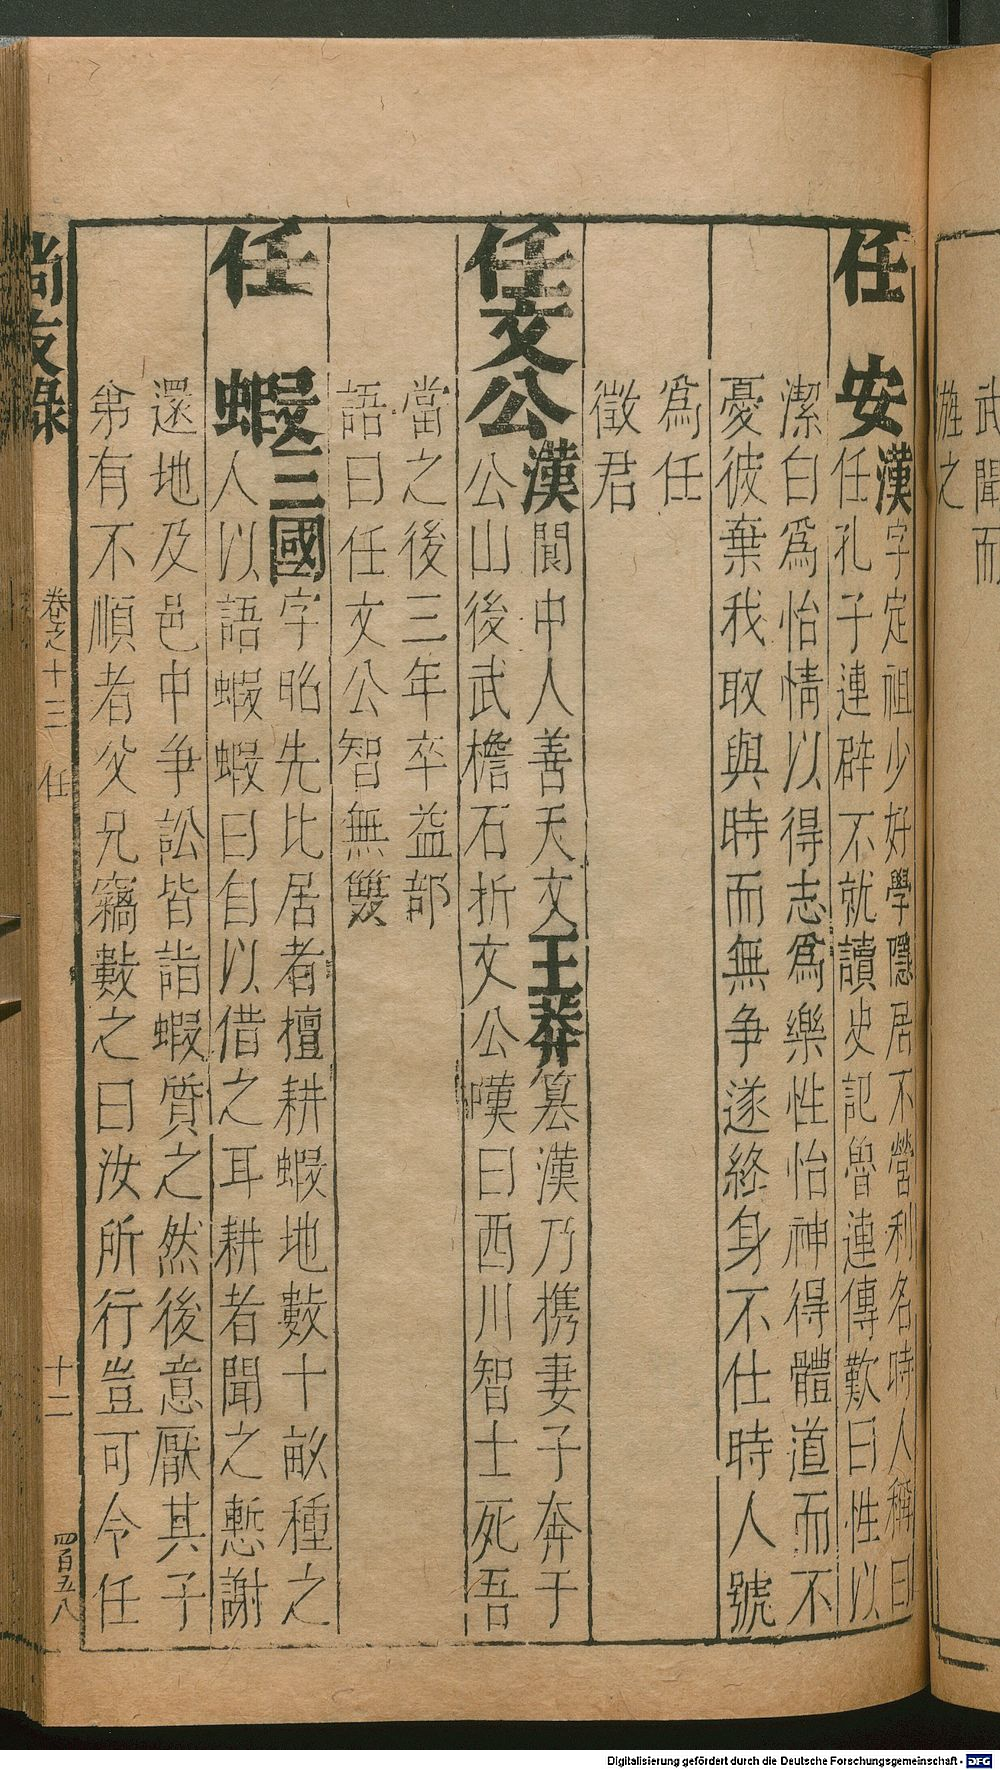 武聞而
之
任安漢字定祖少好學隱居不營利名時人稱曰
任孔子連辟不就讀史記魯連傳歎曰性以
潔白爲怡情以得志爲樂性怡神得體道而不
憂彼棄我取與時而無爭遂終身不仕時人號
爲任
徵君
任文公漢閬中人善天文王莽篡漢乃携妻子奔于
公山後武檐石折文公嘆曰西川智士死吾
當之後三年卒益部
語曰任文公智無雙
任嘏三國字昭先比居者擅耕嘏地數十畝種之
人以語嘏嘏曰自以借之耳耕者聞之慙謝
還地及邑中爭訟皆詣嘏質之然後意厭其子
弟有不順者父兄竊數之曰汝所行豈可令任
尚友錄
卷之十三 任
十二
四百五八
Digitalisierung gefördert durch die Deutsche Forschungsgemeinschaft - DFG